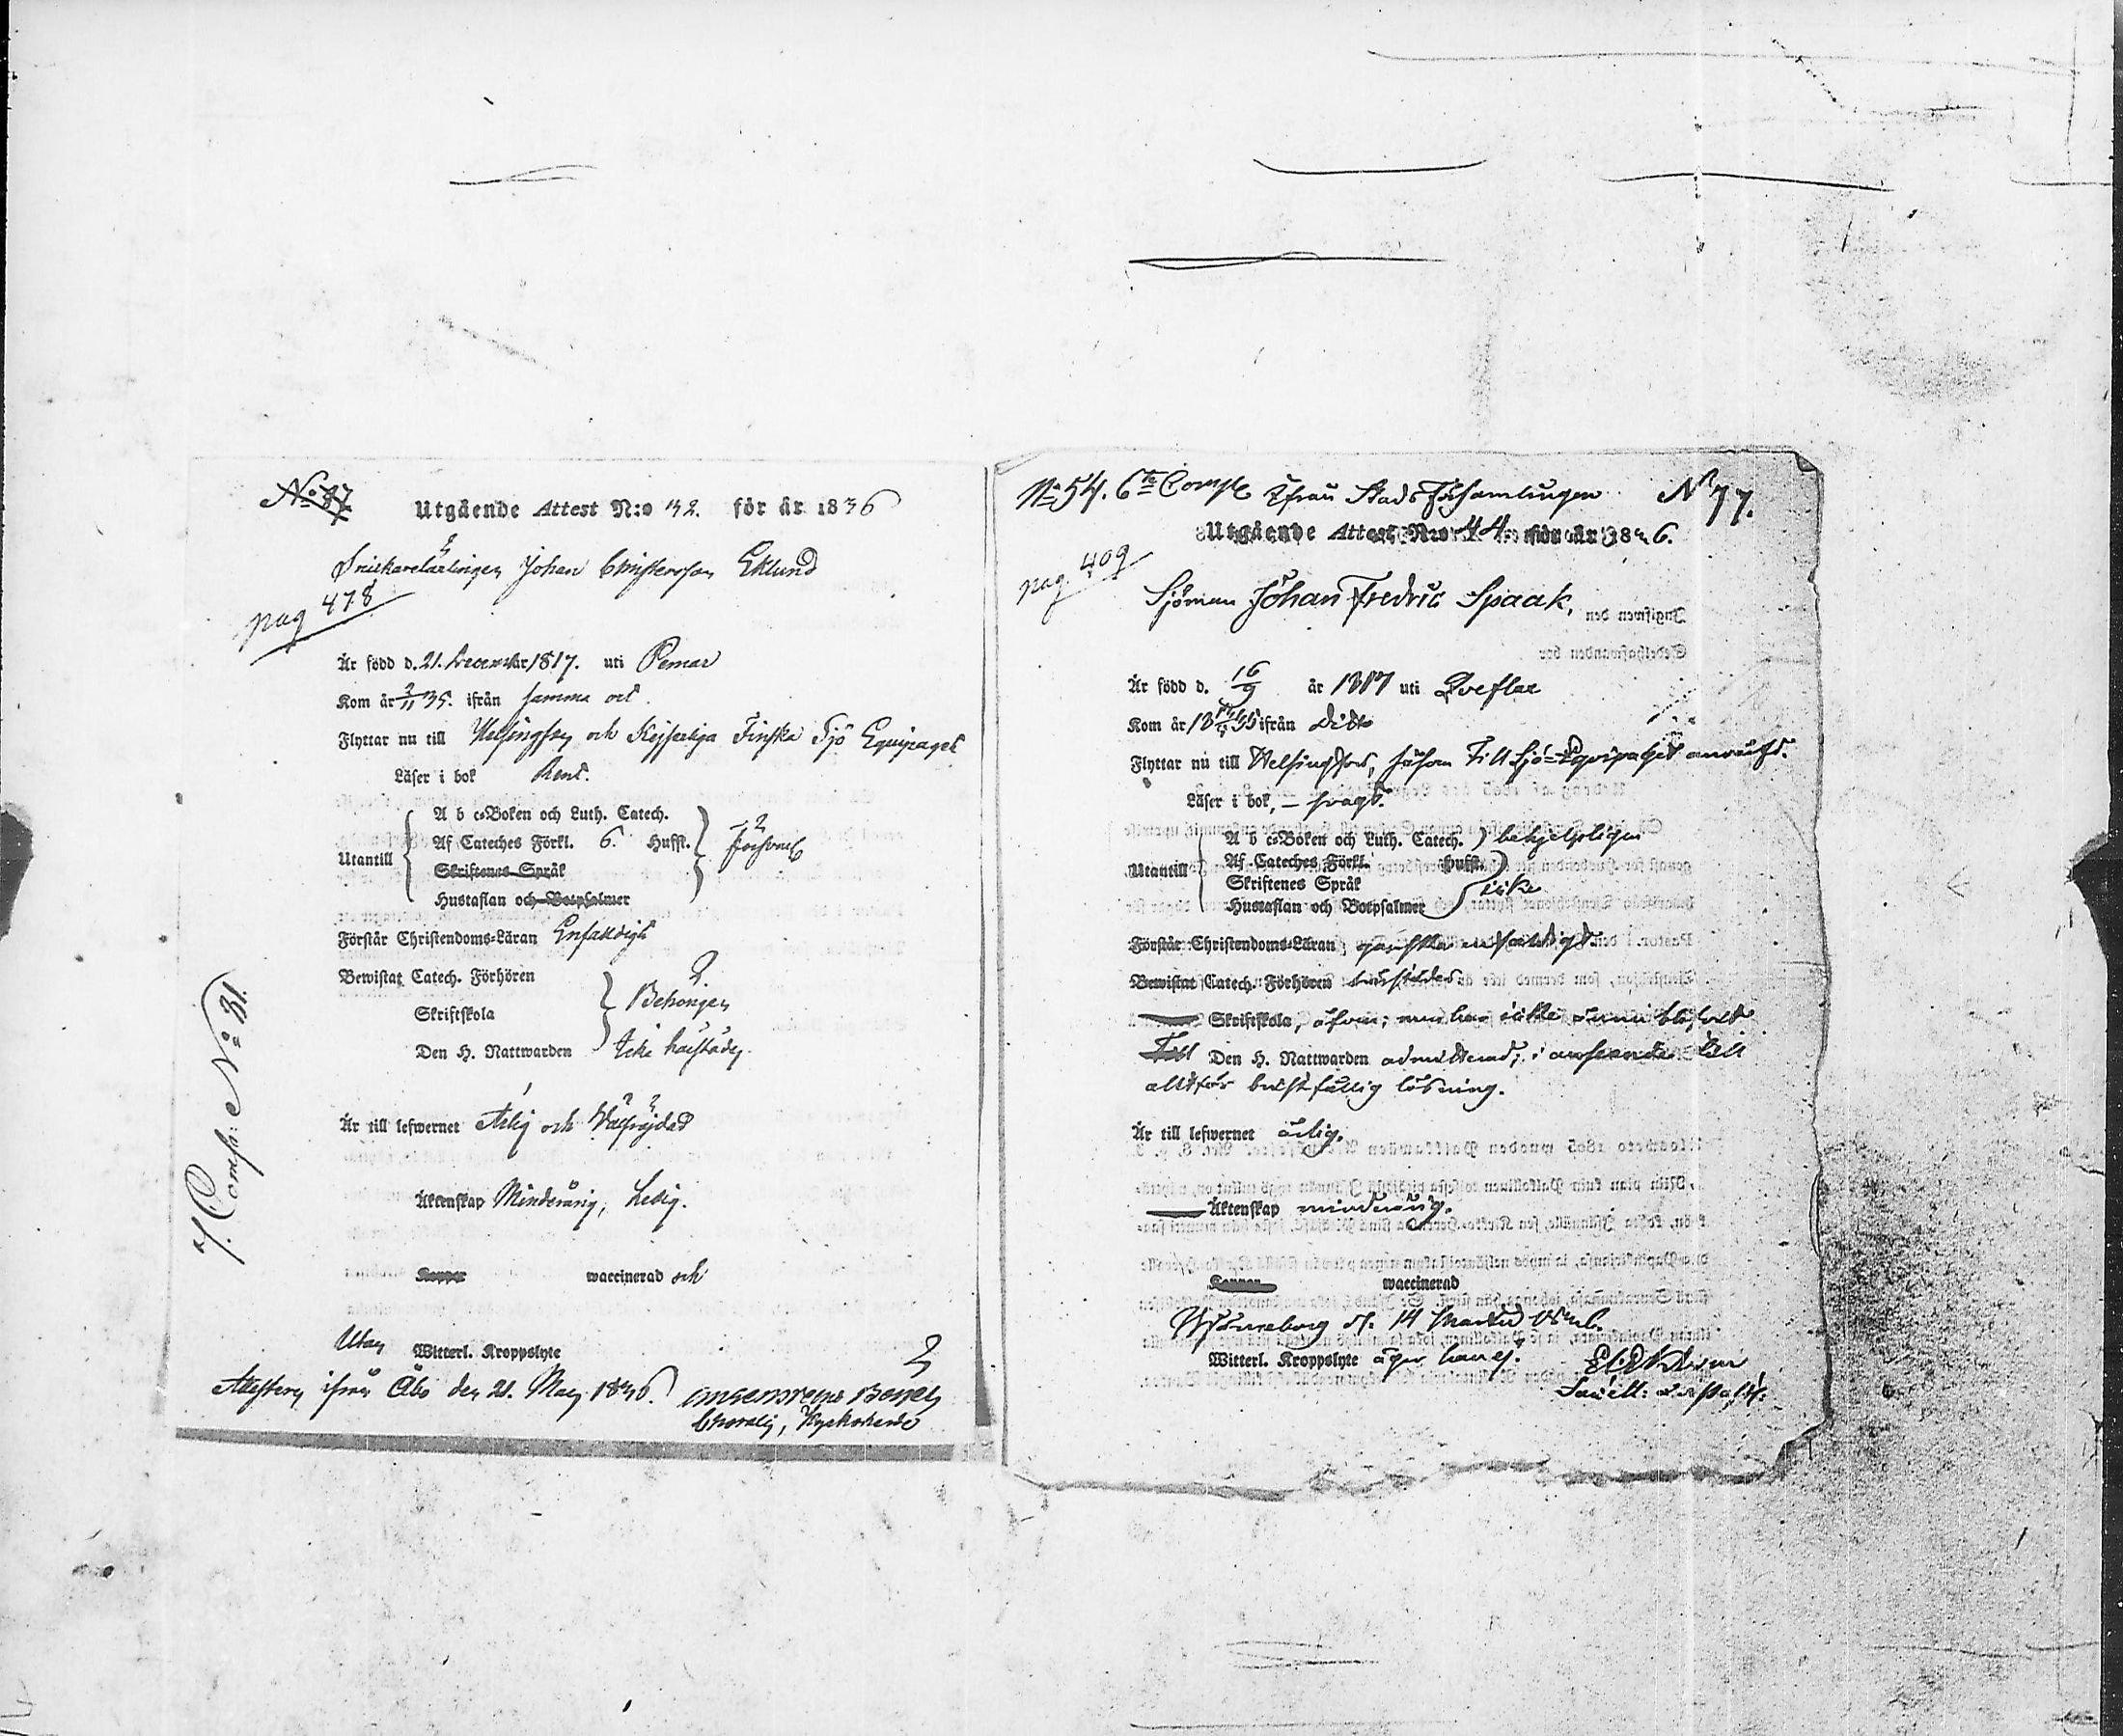 No 87.
Utgående Attest N:o 32. för år 1836
Snickarelärlingen Johan Christersson Eklund
pag 478
Är född d. 21. December 1817. uti Pemar
Kom år 2/11 35. ifrån samma ort.
Flyttar nu till Helsingfors och Kejserliga Finska Sjö Equipaget
Läser i bok Rent.
Utantill
A b c-Boken och Luth. Catech.
Af Cateches Förkl. 6. Huffl.
Försvarl
Skriftenes Språk
Hustaflan och Botpsalmer
Förstår Christendoms-Läran Enfaldigt
Bewistat Catech. Förhören
Skriftskola
Behörigen
Den H. Nattwarden Icke härstädes
Är till lefwernet Ärlig och Wälfrejdad
Äktenskap Minderårig, Ledig.
Koppor waccinerad och
Utan Witterl. Kroppslyte
Attesteras ifrån Åbo den 21. May 1836.
7. Comp: No 31.
No 54. 6te Comp Ifrån Stads Församlingen No 77.
Utgående Attest N:o 44 för år 1836.
pag 409
Sjöman Johan Fredric Spaak,
Är född d. 16/9 år 1817 uti Qveflax
Kom år 1835 ifrån Dito
Flyttar nu till Helsingfors, såsom Till Sjö-Equipaget
Läser i bok, – svagt.
Utantill
A b c-Boken och Luth. Catech. behjelpligen
Af Cateches Förkl. Huffl.
Skriftenes Språk icke
Hustaflan och Botpsalmer
Förstår Christendoms-Läran ganska enfaldigt.
Bewistat Catech. Förhören härstädes
Skriftskola, äfven; men har icke ännu blifvit
Till Den H. Nattwarden admitterad; i anseende till
alltför bristfällig läsning.
Är till lefwernet ärlig.
Äktenskap minderårig.
Koppor waccinerad
Björneborg d. 14 Martii 1836.
Witterl. Kroppslyte äger han ej.